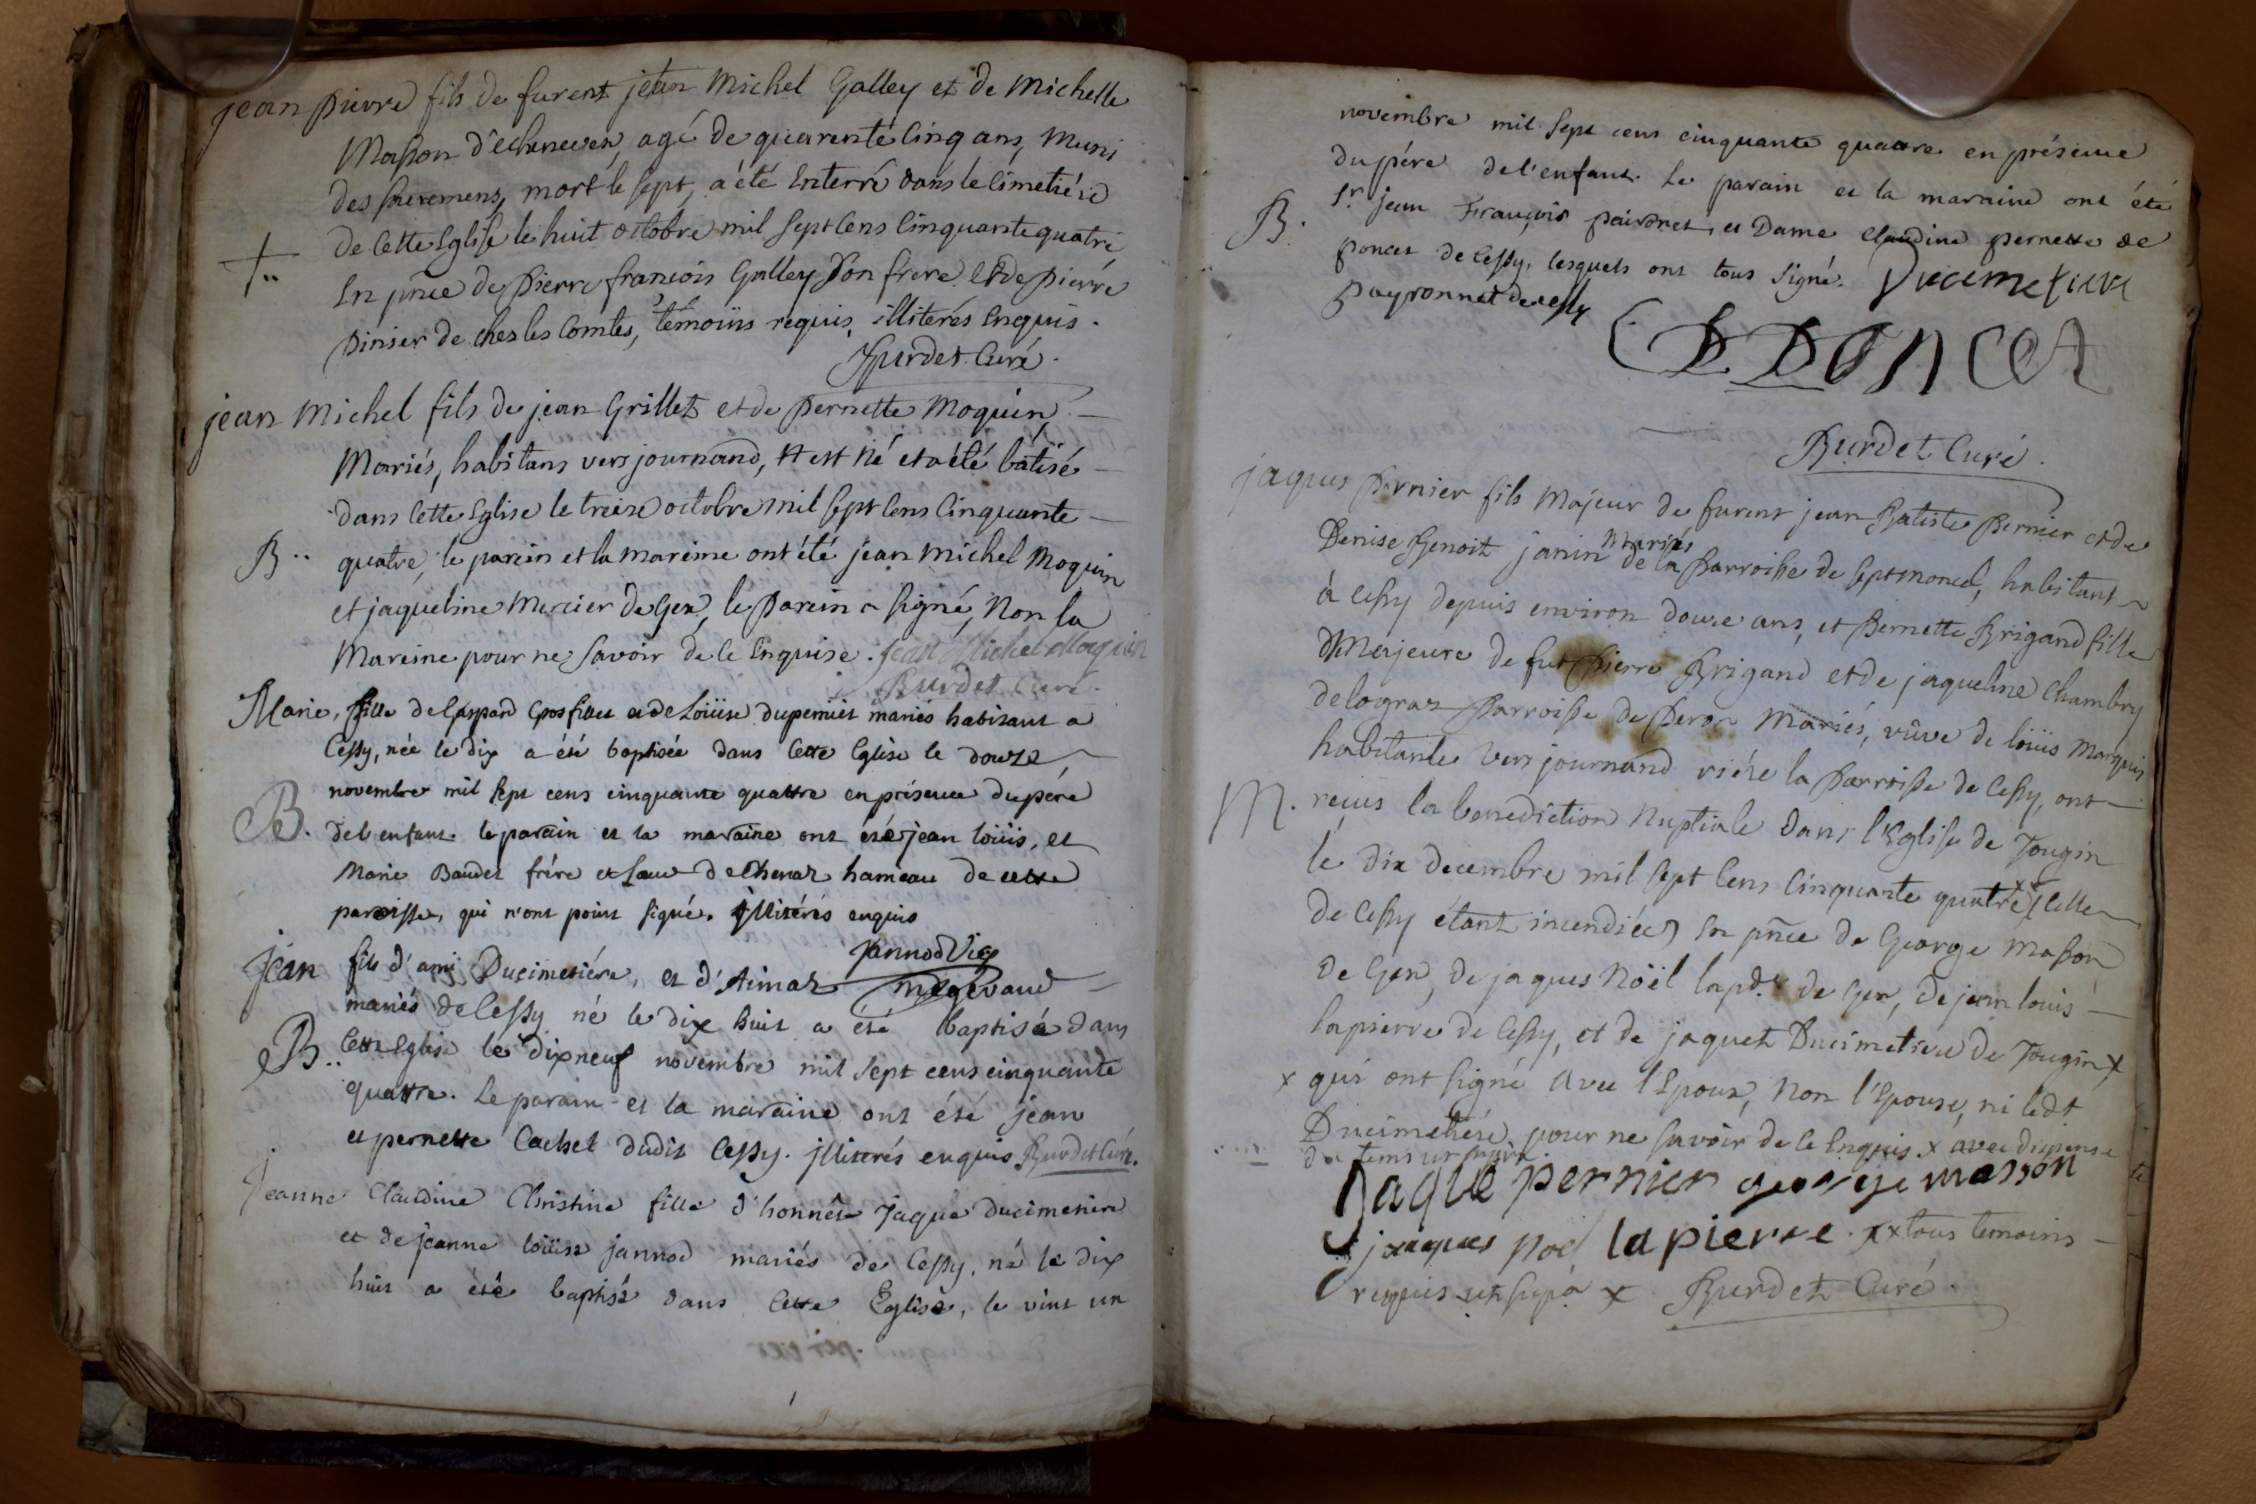 jean pierre fils de furent jean Michel Galley et de Michelle
Masson d'échenevex, agé de quarente Cinq ans, Muni
des sacremens, mort le sept, a été Enterré dans le Cimetiére
de Cette Eglise le huit octobre mil sept Cens Cinquante quatre
En pnce de Pierre francois Galley son frere et de Pierre
Pinier de ches les Comtes, témoins requis, illiterés Enquis.
Burdet Curé.
jean Michel fils de jean Grillet et de Pernette Moquin,
Mariés, habitans vers journand, est né et a été batisé
dans Cette Eglise le treize octobre mil sept Cens Cinquante
B.. quatre, le parein et la mareine ont été jean michel Moquin
et jaqueline Mercier de Gex, le Parein a signé, Non la
Mareine pour ne savoir de ce Enquise. jean Michel Moquin
Burdet Curé.
Marie, fille de Gaspard Grosfillet et de Loüise duperrier mariés habitant a
Cessy, née le dix a été baptisée dans Cette Eglise le douze
novembre mil sept cens cinquante quattre en présence du pere
B. de l'enfant. le parain et la maraine ont été jean loüis, et
Marie Baudet frére et sœur de Chenaz hameau de cette
paroisse, qui n'ont point signé. illitérés enquis
Jannod Vic
jean fils d'ami Ducimetiére, et d'Aimaz Megevand
mariés de Cessy né le dix huit a été baptisé dans
B.. Cette Eglise le dixneuf novembre mil sept cens cinquante
quattre. Le parain et la maraine ont été jean
et pernette Cachet dudit Cessy. jlliterés enquis Burdet Curé.
Jeanne Claudine Christine fille d'honnête Jaque ducimetiere
et de jeanne loüise jannod mariés de Cessy, né le dix
huit a été baptisé dans Cette Eglise, le vint un
novembre mil sept cens cinquante quattre en présence
du pére de l'enfant. Le parain et la maraine ont été
B. Sr. jean François peironet, et Dame Claudine pernette de
poncet de Cessy, lesquels ont tous signé. Ducimetiere
payronnet de cessy
C P PONCET
Burdet Curé.
jaques Pernier fils Majeur de furent jean Batiste Pernier et de
Denise Benoit janin Mariés de la Parroisse de septmoncel, habitant
à Cessy depuis environ douze ans, et Pernette Brigand fille
Majeure de fut Pierre Brigand et de jaqueline Chambry
de logras Parroisse de Peron Mariés, vûve de loüis Marquis
habitante vers journand riére la Parroisse de Cessy, ont
M. reçus la benediction Nuptiale dans l'Eglise de Tougin
le dix decembre mil sept Cens Cinquante quatre xx (Celle
de Cessy étant incendiée) En pnce de George Masson
de Gex, de jaques Noël de Gex, de jean louis
lapierre de Cessy, et de jaques Ducimetiere de Tougin x
x qui ont signé avec l'Epoux, Non l'Epouse, ni ledt
Ducimetiére pour ne savoir de ce Enquis x avec dispense
du tems
Jaque pernier george masson
jaques noel lapierre. xx tous temoins
requis ut supa x Burdet Curé.